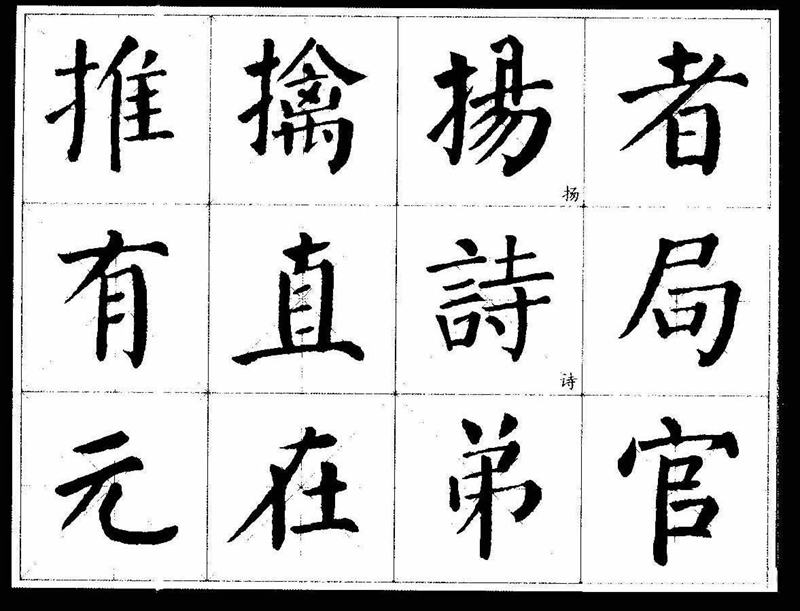 推擒揚者
扬
有直詩局
诗
元在弟官